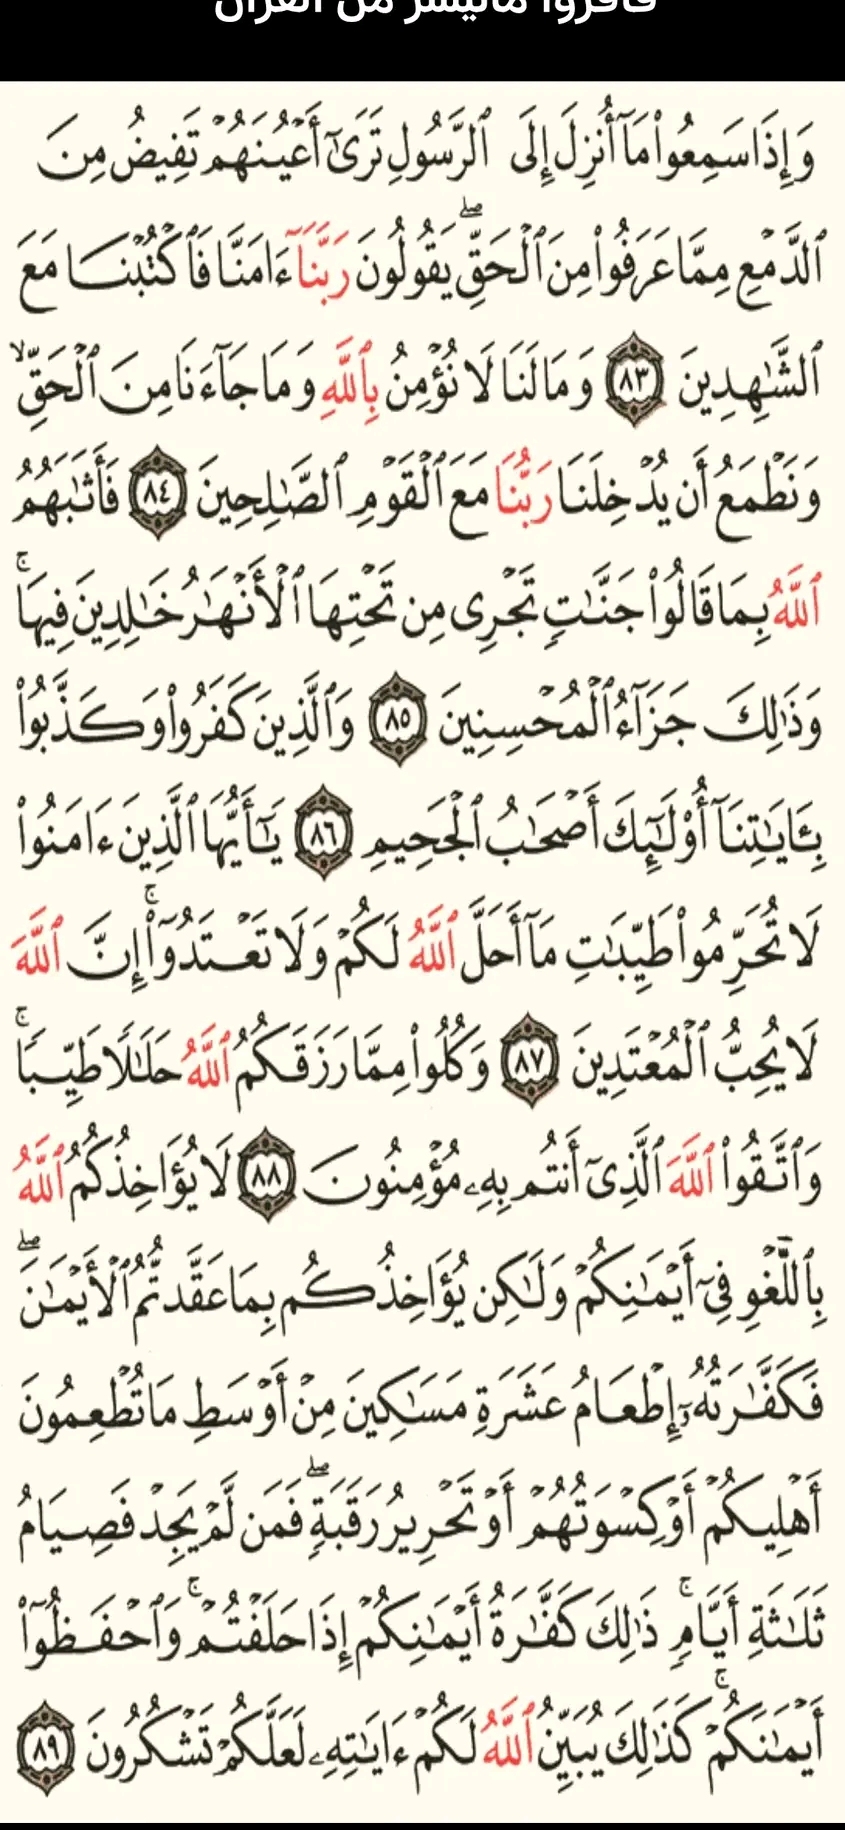 فاقرؤا ماتيسر من القرآن
وَإِذَا سَمِعُوا۟ مَآ أُنزِلَ إِلَى ٱلرَّسُولِ تَرَىٰٓ أَعْيُنَهُمْ تَفِيضُ مِنَ
ٱلدَّمْعِ مِمَّا عَرَفُوا۟ مِنَ ٱلْحَقِّ ۖ يَقُولُونَ رَبَّنَآ ءَامَنَّا فَٱكْتُبْنَا مَعَ
ٱلشَّٰهِدِينَ ٨٣ وَمَا لَنَا لَا نُؤْمِنُ بِٱللَّهِ وَمَا جَآءَنَا مِنَ ٱلْحَقِّ ۙ
وَنَطْمَعُ أَن يُدْخِلَنَا رَبُّنَا مَعَ ٱلْقَوْمِ ٱلصَّٰلِحِينَ ٨٤ فَأَثَٰبَهُمُ
ٱللَّهُ بِمَا قَالُوا۟ جَنَّٰتٍ تَجْرِى مِن تَحْتِهَا ٱلْأَنْهَٰرُ خَٰلِدِينَ فِيهَا ۚ
وَذَٰلِكَ جَزَآءُ ٱلْمُحْسِنِينَ ٨٥ وَٱلَّذِينَ كَفَرُوا۟ وَكَذَّبُوا۟
بِـَٔايَٰتِنَآ أُو۟لَٰٓئِكَ أَصْحَٰبُ ٱلْجَحِيمِ ٨٦ يَٰٓأَيُّهَا ٱلَّذِينَ ءَامَنُوا۟
لَا تُحَرِّمُوا۟ طَيِّبَٰتِ مَآ أَحَلَّ ٱللَّهُ لَكُمْ وَلَا تَعْتَدُوٓا۟ ۚ إِنَّ ٱللَّهَ
لَا يُحِبُّ ٱلْمُعْتَدِينَ ٨٧ وَكُلُوا۟ مِمَّا رَزَقَكُمُ ٱللَّهُ حَلَٰلًا طَيِّبًا ۚ
وَٱتَّقُوا۟ ٱللَّهَ ٱلَّذِىٓ أَنتُم بِهِۦ مُؤْمِنُونَ ٨٨ لَا يُؤَاخِذُكُمُ ٱللَّهُ
بِٱللَّغْوِ فِىٓ أَيْمَٰنِكُمْ وَلَٰكِن يُؤَاخِذُكُم بِمَا عَقَّدتُّمُ ٱلْأَيْمَٰنَ ۖ
فَكَفَّٰرَتُهُۥٓ إِطْعَامُ عَشَرَةِ مَسَٰكِينَ مِنْ أَوْسَطِ مَا تُطْعِمُونَ
أَهْلِيكُمْ أَوْ كِسْوَتُهُمْ أَوْ تَحْرِيرُ رَقَبَةٍ ۖ فَمَن لَّمْ يَجِدْ فَصِيَامُ
ثَلَٰثَةِ أَيَّامٍ ۚ ذَٰلِكَ كَفَّٰرَةُ أَيْمَٰنِكُمْ إِذَا حَلَفْتُمْ ۚ وَٱحْفَظُوٓا۟
أَيْمَٰنَكُمْ ۚ كَذَٰلِكَ يُبَيِّنُ ٱللَّهُ لَكُمْ ءَايَٰتِهِۦ لَعَلَّكُمْ تَشْكُرُونَ ٨٩